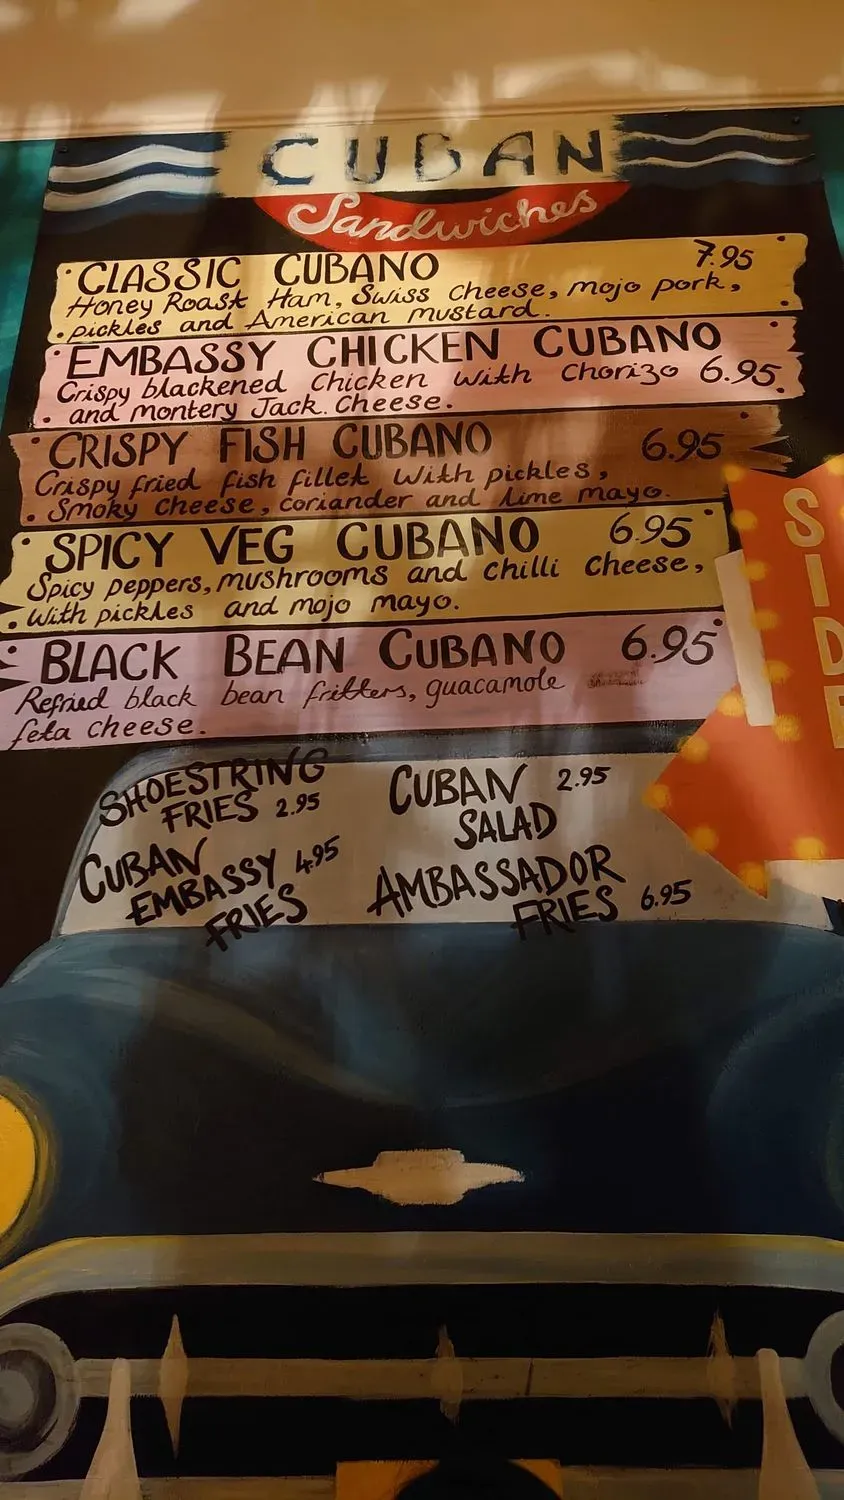 CUBAN
Sandwiches
CLASSIC CUBANO 7.95
Honey Roast Ham, Swiss cheese, mojo pork,
pickles and American mustard.
EMBASSY CHICKEN CUBANO
Crispy blackened Chicken with Chorizo 6.95
and montery Jack Cheese.
CRISPY FISH CUBANO 6.95
Crispy fried fish fillet with pickles,
Smoky Cheese, coriander and lime mayo.
SPICY VEG CUBANO 6.95
Spicy peppers, mushrooms and chilli cheese,
with pickles and mojo mayo.
BLACK BEAN CUBANO 6.95
Refried black bean fritters, guacamole
feta cheese.
SIDE
SHOESTRING
FRIES 2.95
CUBAN
EMBASSY 4.95
FRIES
CUBAN 2.95
SALAD
AMBASSADOR
FRIES 6.95